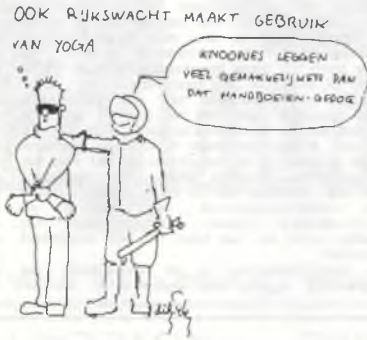 OOK RIJKSWACHT MAAKT GEBRUIK
VAN YOGA
KNOOPJES LEGGEN
VEEL GEMAKKELIJKER DAN
DAT HANDBOEIEN-GEDOE